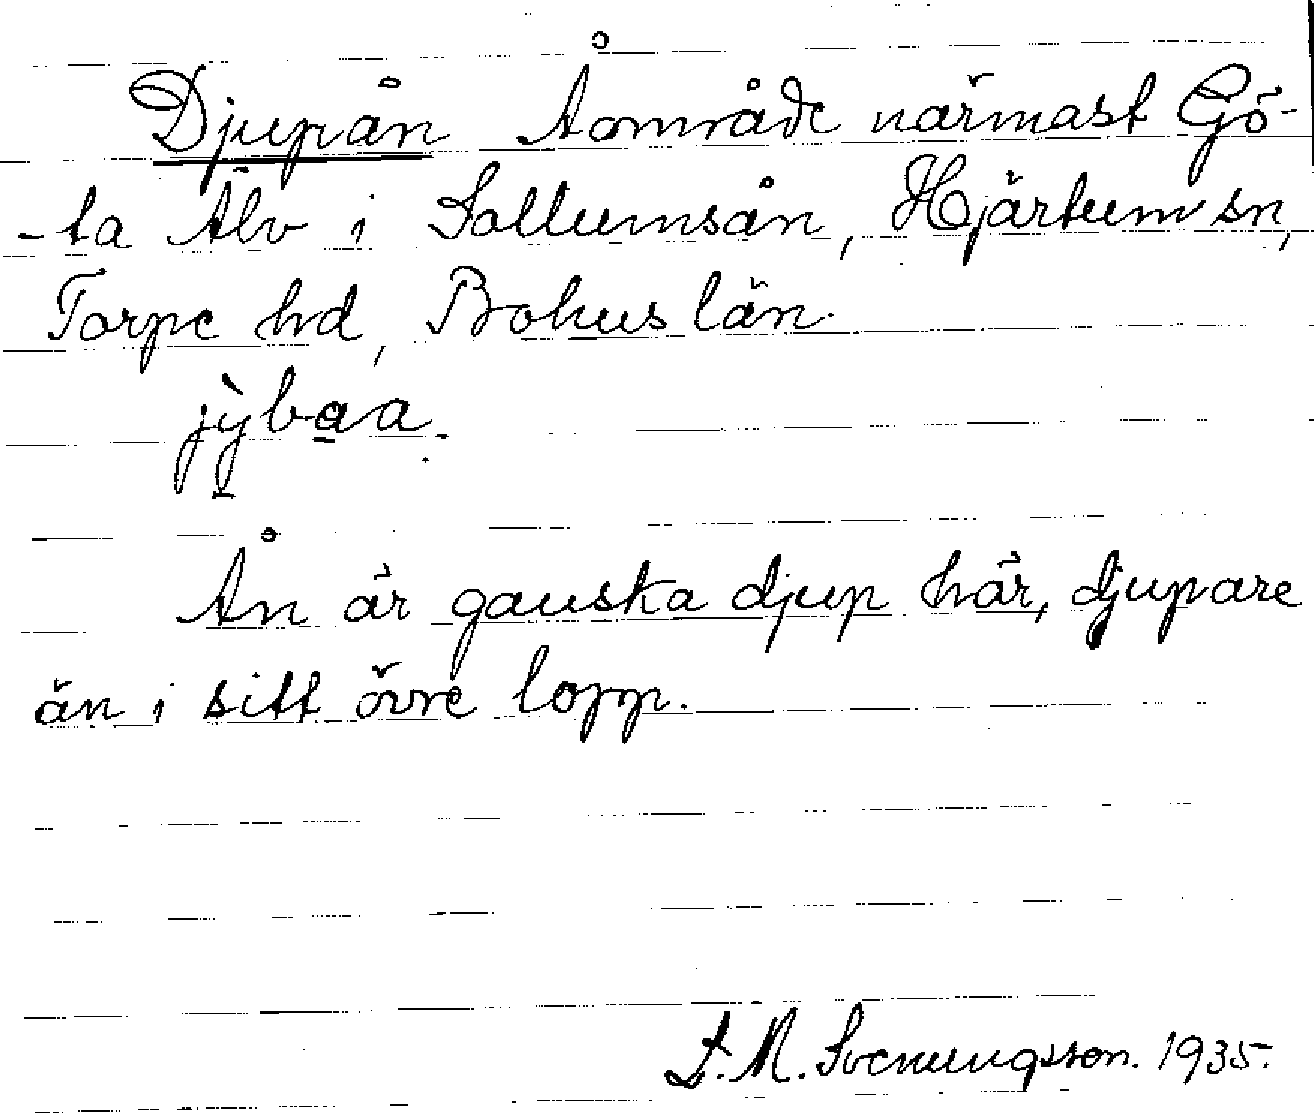 Djupån Åområde närmast Gö-
-ta Älv i Sollumsån, Hjärtum sn,
Torpe hd, Bohus län.
jỳbaa.
Ån är ganska djup här, djupare
än i sitt övre lopp.
F. M. Svenungsson. 1935.